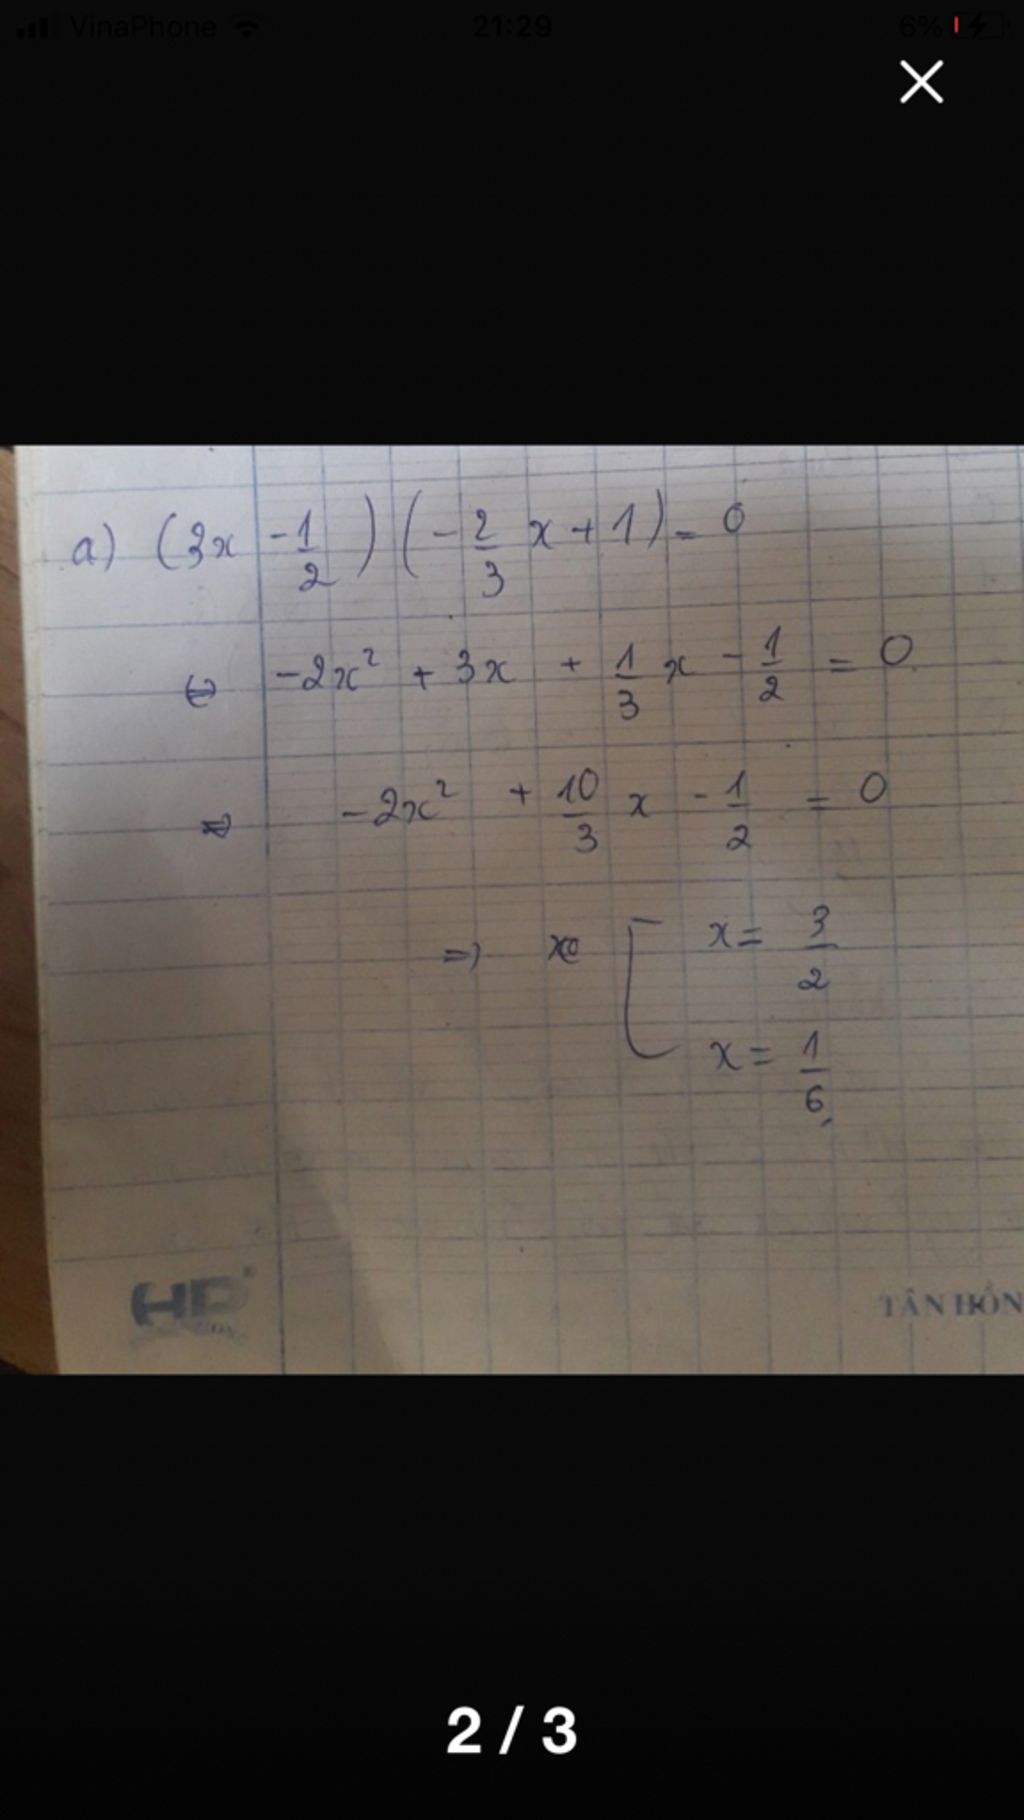 VinaPhone 21:29 6%
a) (3x - 1/2)(-2/3 x + 1) = 0
⇔ -2x² + 3x + 1/3 x - 1/2 = 0
⇔ -2x² + 10/3 x - 1/2 = 0
⇒ [ x = 3/2
x = 1/6
HP
TÂN HỒN
2 / 3